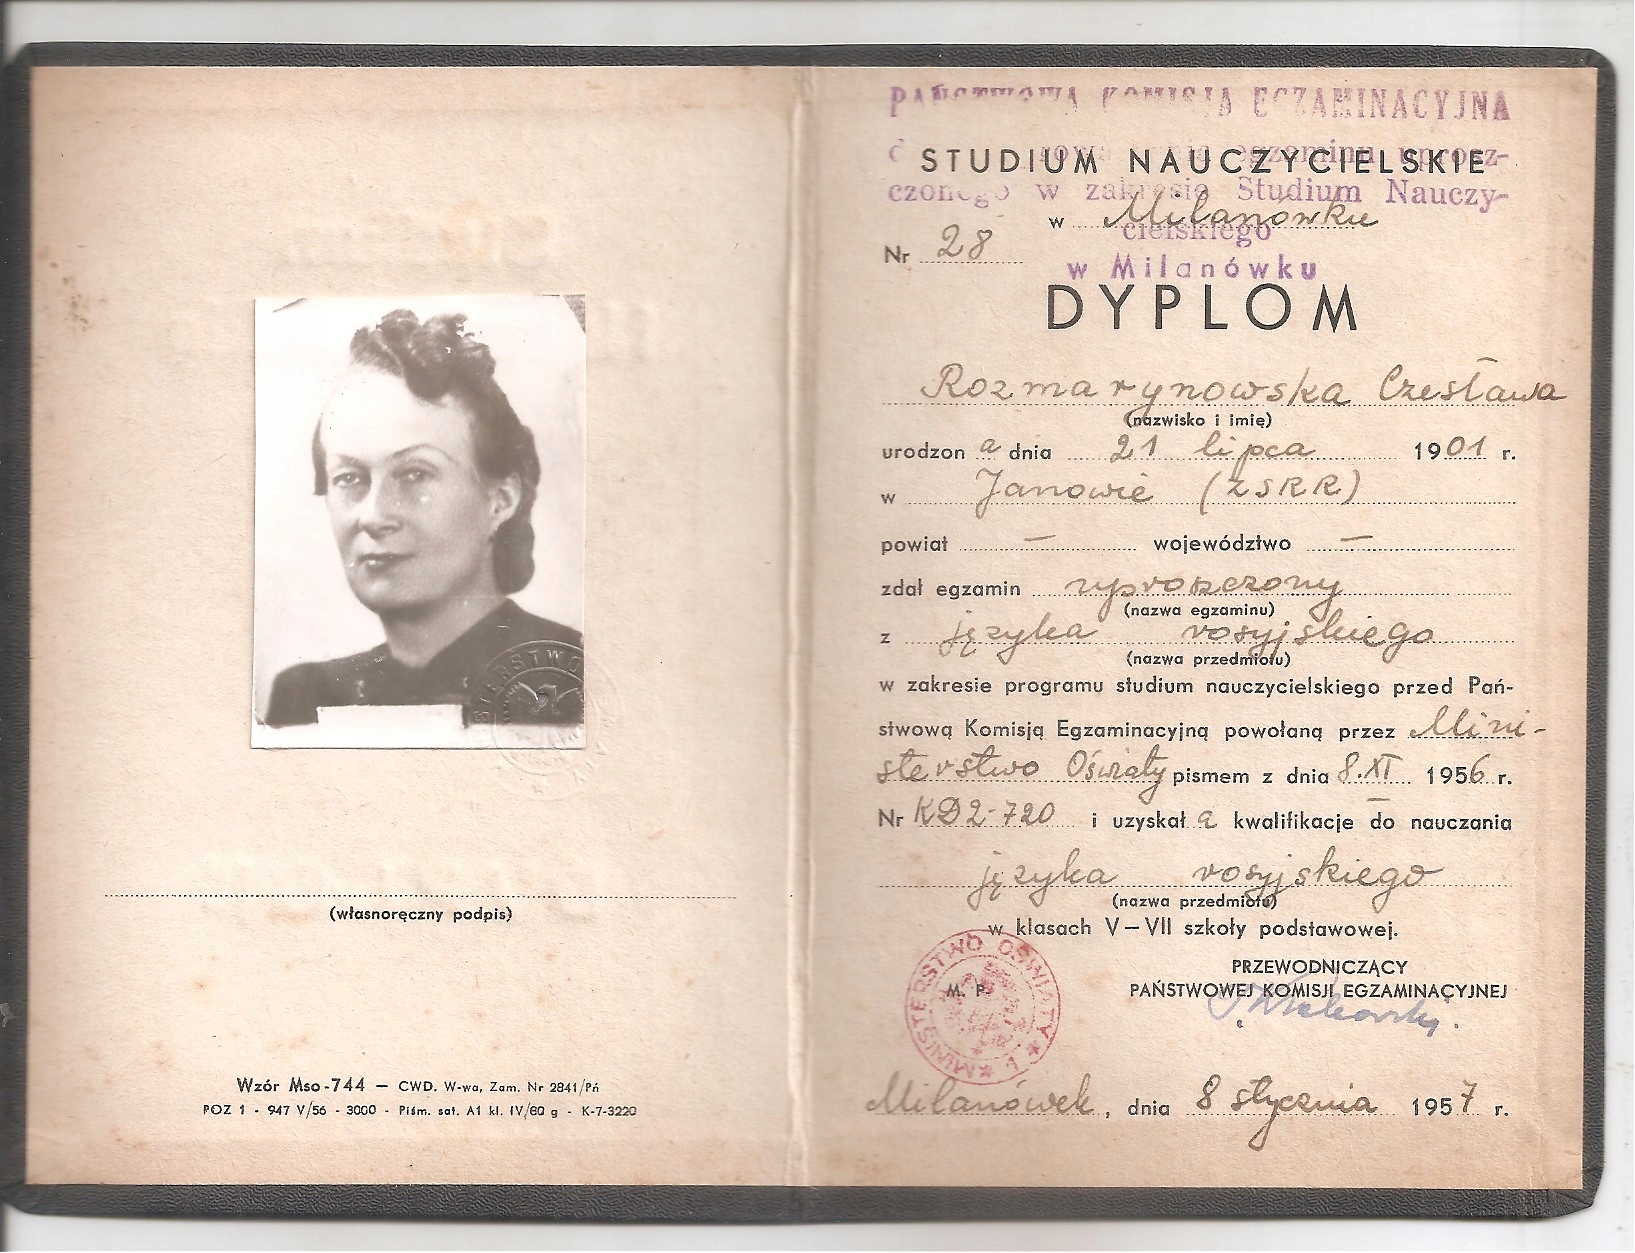 (własnoręczny podpis)
Wzór Mso-744 — CWD. W-wa, Zam. Nr 2841/Pń
POZ 1 - 947 V/56 - 3000 - Piśm. sat. A1 kl. IV/60 g - K-7-3220
PAŃSTWOWA KOMISJA EGZAMINACYJNA
egzaminu uprosz-
STUDIUM NAUCZYCIELSKIE
czonego w zakresie Studium Nauczy-
w Milanówku
cielskiego
Nr 28
w Milanówku
DYPLOM
Rozmarynowska Czesława
(nazwisko i imię)
urodzon a dnia 21 lipca 1901 r.
w Janowie (ZSRR)
powiat — województwo —
zdał egzamin uproszczony
(nazwa egzaminu)
z języka rosyjskiego
(nazwa przedmiotu)
w zakresie programu studium nauczycielskiego przed Pań-
stwową Komisją Egzaminacyjną powołaną przez Mini-
sterstwo Oświaty pismem z dnia 8.XI 1956 r.
Nr KD2-720 i uzyskał a kwalifikacje do nauczania
języka rosyjskiego
(nazwa przedmiotu)
w klasach V—VII szkoły podstawowej.
PRZEWODNICZĄCY
M. P. PAŃSTWOWEJ KOMISJI EGZAMINACYJNEJ
MINISTERSTWO OŚWIATY
Milanówek, dnia 8 stycznia 1957 r.